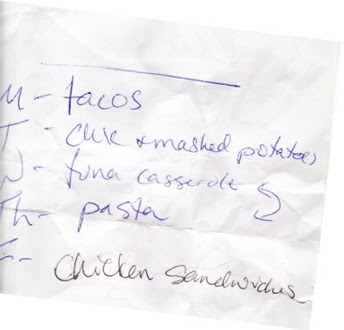 M - tacos
T - chic + mashed potatoes
W - tuna casserole
Th - pasta
F - Chicken Sandwiches